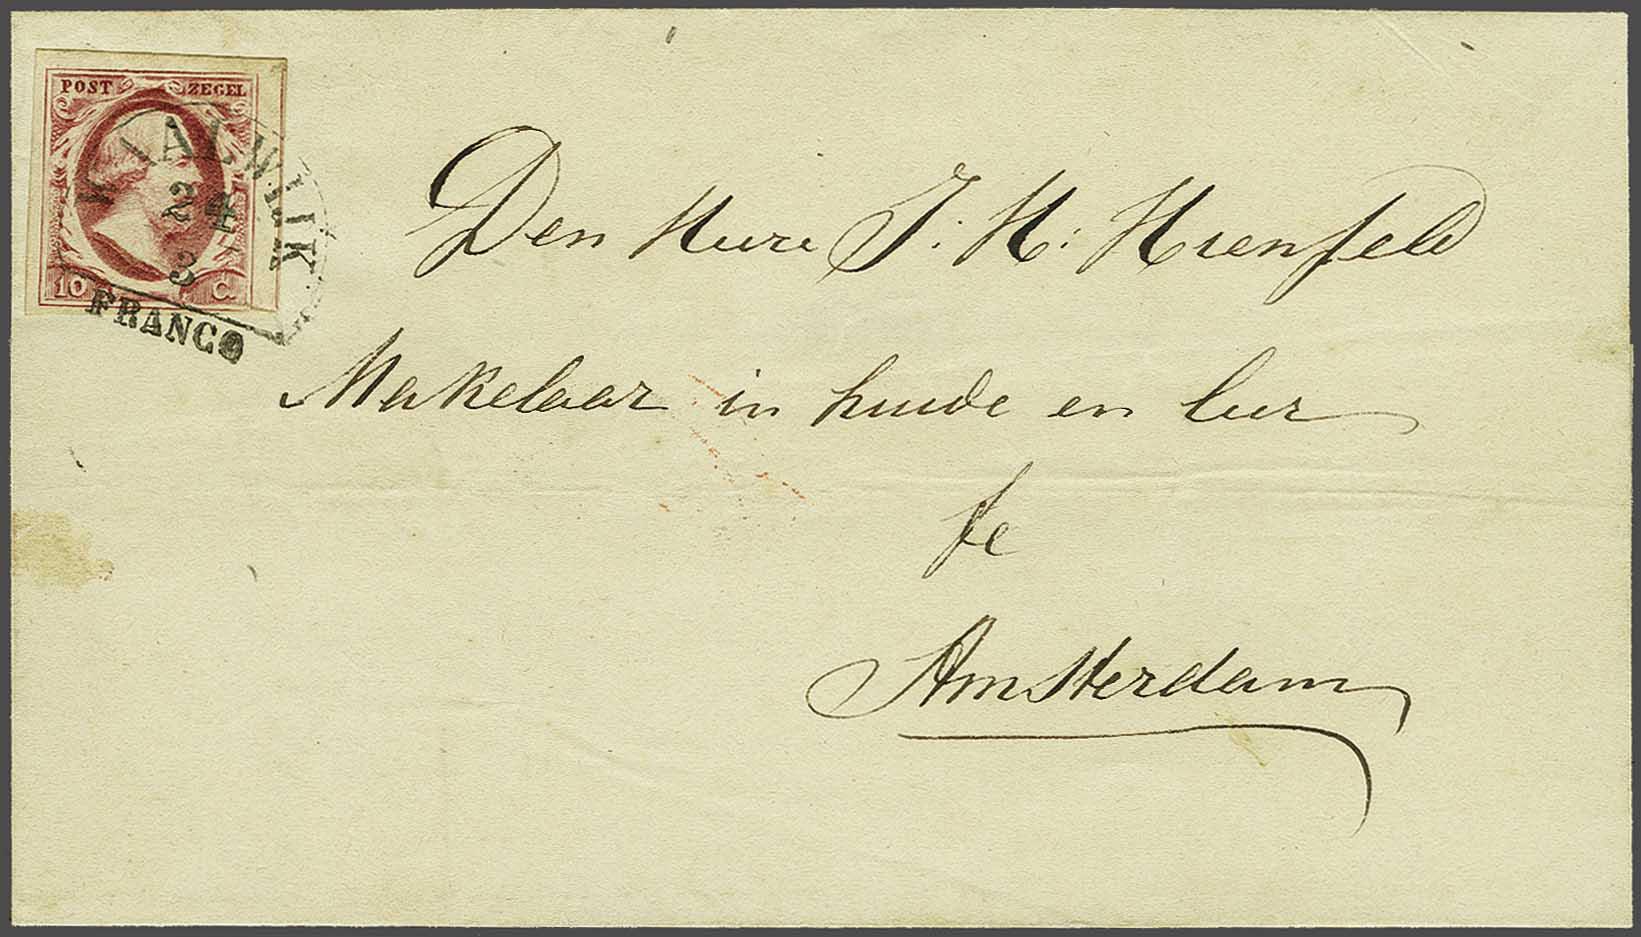 POST ZEGEL
WAALWIJK
22
4
3
10 C.
FRANCO
Den Heere J. H. Hrenfeld
Makelaar in huide en leer
te
Amsterdam